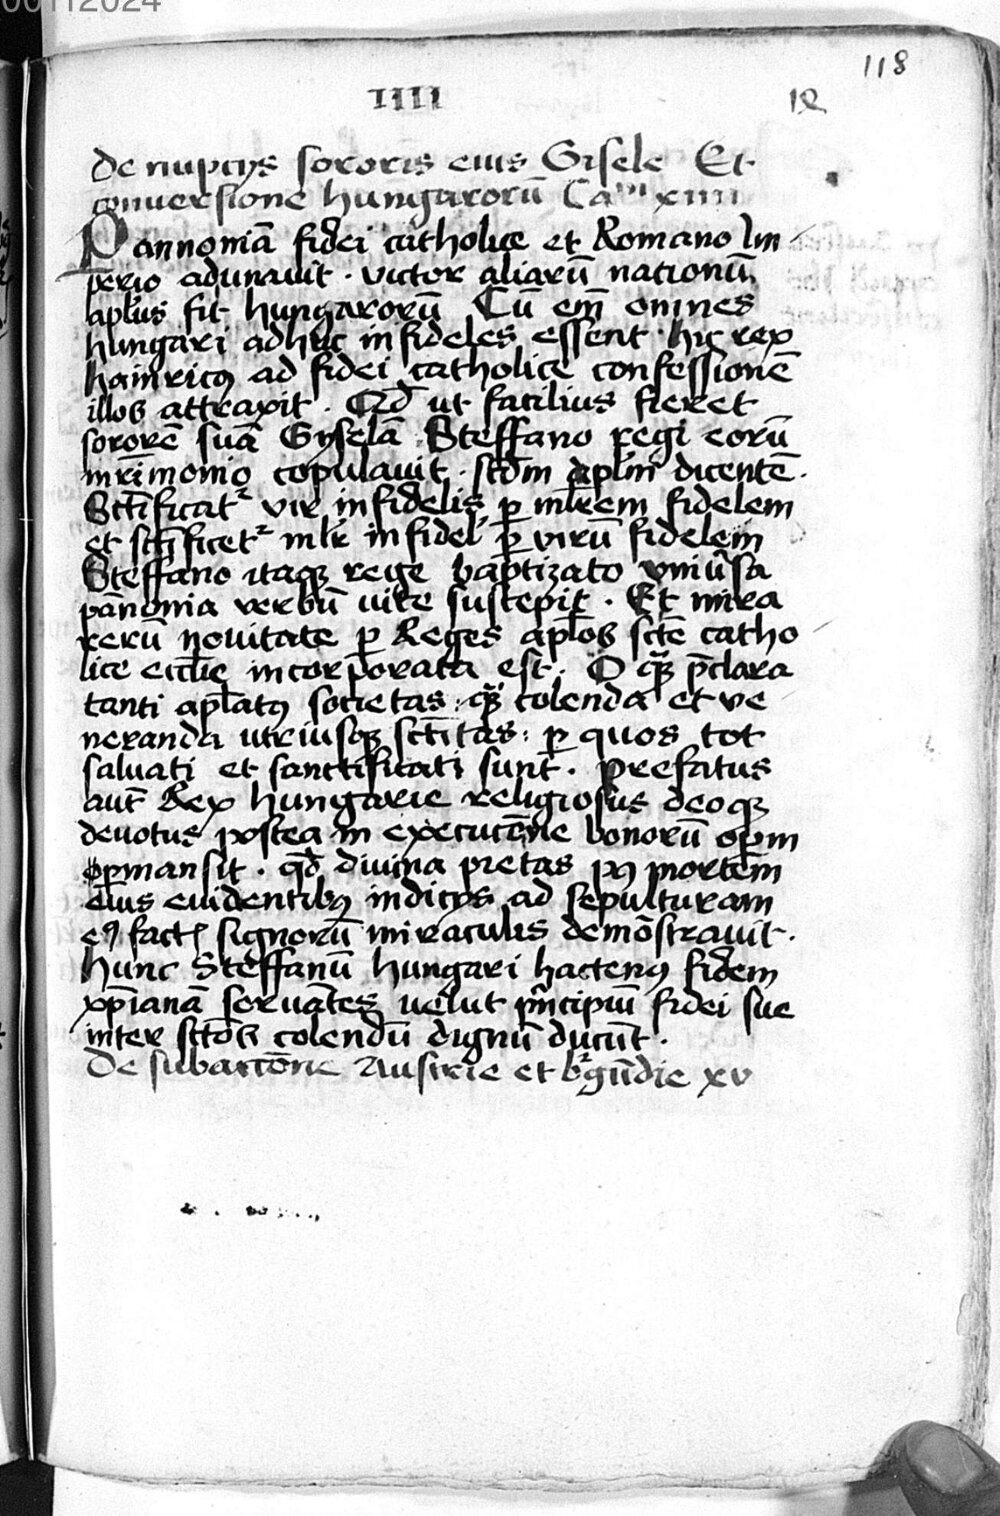 00112024
118
IIII
De nuptijs sororis eius Gisele Et
conuersione hungarorū Capm xiiii
Pannoniā fidei catholice et Romano Im
perio adunauit . victor aliarū nationū
aplus fit hungarorū Cū em̄ omnes
hungari adhuc infideles essent . hic rex
hainricꝰ ad fidei catholice confessionē
illos attraxit . Qd̄ ut facilius fieret
sororē suā Gyselā Steffano regi eorū
mr̄imonio copulauit . scd̄m aplm̄ dicentē .
Sctīficatᷣ vir infidelis ꝑ ml̄rem fidelem
et sctīficetᷣ ml̄r infidel̄ ꝑ virū fidelem
Steffano itaqꝫ rege baptizato vniūsa
pānonia verbū vite suscepit . Et mira
rerū nouitate ꝑ Reges aplos scte catho
lice ecclie incorporata est . O qꝫ p̄clara
tanti aplatꝰ societas : qꝫ colenda et ve
neranda utriusqꝫ sctītas : ꝑ quos tot
saluati et sanctificati sunt . prefatus
aut̄ Rex hungarie religiosus deoqꝫ
deuotus postea in executōne bonorū opm̄
ꝑmansit . qd̄ diuina pietas pꝰ mortem
eius euidentibꝰ indicijs ad sepulturam
eꝰ factꝭ signorū miraculis demōstrauit .
hunc Steffanū hungari hactenꝰ fidem
xp̄ianā seruātes velut pͥncipiū fidei sue
inter sctōs colendū dignū ducūt .
De subarrōne Austrie et bᷣgūdie xv